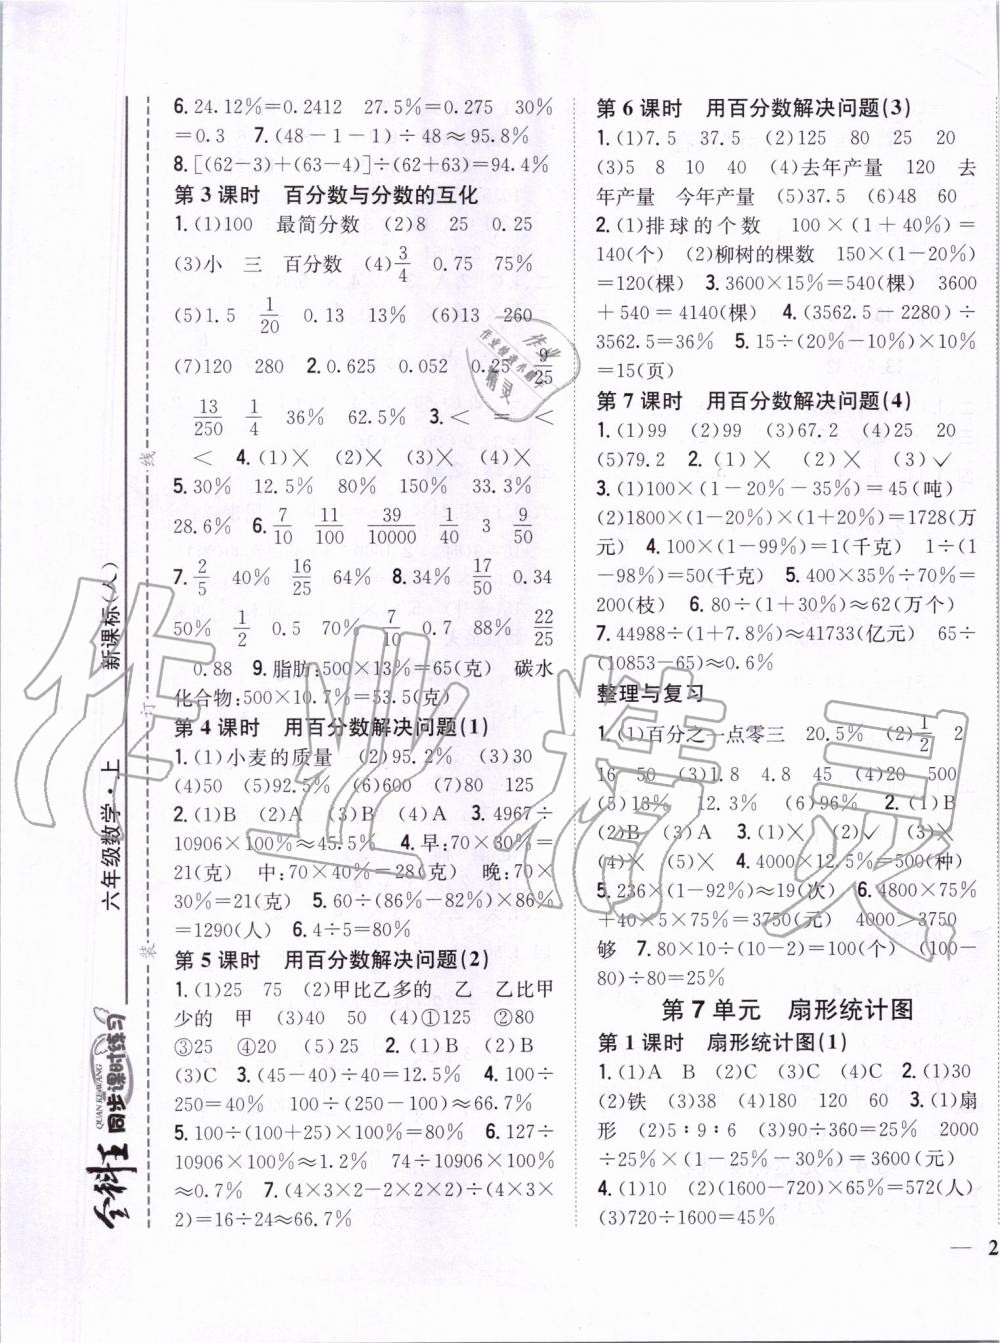 6.24.12%=0.2412 27.5%=0.275 30%
=0.3 7.(48-1-1)÷48≈95.8%
8.[(62-3)+(63-4)]÷(62+63)=94.4%
第3课时 百分数与分数的互化
1.(1)100 最简分数 (2)8 25 0.25
(3)小 三 百分数 (4)3/4 0.75 75%
(5)1.5 1/20 0.13 13% (6)13 260
(7)120 280 2.0.625 0.052 0.25 9/25
13/250 1/4 36% 62.5% 3.< = <
< 4.(1)× (2)× (3)× (4)×
5.30% 12.5% 80% 150% 33.3%
28.6% 6.7/10 11/100 39/10000 1/40 3 9/50
7.2/5 40% 16/25 64% 8.34% 17/50 0.34
50% 1/2 0.5 70% 7/10 0.7 88% 22/25
0.88 9.脂肪:500×13%=65(克) 碳水
化合物:500×10.7%=53.5(克)
第4课时 用百分数解决问题(1)
1.(1)小麦的质量 (2)95.2% (3)30
(4)50 (5)92.5% (6)600 (7)80 125
2.(1)B (2)A (3)B (4)A 3.4967÷
10906×100%≈45.5% 4.早:70×30%=
21(克) 中:70×40%=28(克) 晚:70×
30%=21(克) 5.60÷(86%-82%)×86%
=1290(人) 6.4÷5=80%
第5课时 用百分数解决问题(2)
1.(1)25 75 (2)甲比乙多的 乙 乙比甲
少的 甲 (3)40 50 (4)①125 ②80
③25 ④20 (5)25 2.(1)B (2)B
(3)C 3.(45-40)÷40=12.5% 4.100÷
250=40% 100÷(250-100)≈66.7%
5.100÷(100+25)×100%=80% 6.127÷
10906×100%≈1.2% 74÷10906×100%
≈0.7% 7.(4×3×2-2×2×2)÷(4×3×
2)=16÷24≈66.7%
第6课时 用百分数解决问题(3)
1.(1)7.5 37.5 (2)125 80 25 20
(3)5 8 10 40 (4)去年产量 120 去
年产量 今年产量 (5)37.5 (6)48 60
2.(1)排球的个数 100×(1+40%)=
140(个) (2)柳树的棵数 150×(1-20%)
=120(棵) 3.3600×15%=540(棵) 3600
+540=4140(棵) 4.(3562.5-2280)÷
3562.5=36% 5.15÷(1-10%)×10%
=15(页)
第7课时 用百分数解决问题(4)
1.(1)99 (2)99 (3)67.2 (4)25 20
(5)79.2 2.(1)× (2)× (3)✓
3.(1)100×(1-20%-35%)=45(吨)
(2)1800×(1-20%)×(1+20%)=1728(万
元) 4.100×(1-99%)=1(千克) 1÷(1
-98%)=50(千克) 5.400×35%÷70%=
200(枝) 6.80÷(1+30%)≈62(万个)
7.44988÷(1+7.8%)≈41733(亿元) 65÷
(10853-65)≈0.6%
整理与复习
1.(1)百分之一点零三 20.5% (2)1/2 2
16 50 (3)1.8 4.8 45 (4)20 500
(5)18% 12.3% (6)96% 2.(1)B
(2)B (3)A 3.(1)× (2)✓ (3)×
(4)× (5)× 4.4000×12.5%=500(种)
5.236×(1-92%)≈19(次) 6.4800×75%
+40×5×75%=3750(元) 4000>3750
够 7.80×10÷(10-2)=100(个) (100-
80)÷80=25%
第7单元 扇形统计图
第1课时 扇形统计图(1)
1.(1)A B (2)C (3)C (4)C 2.(1)30
(2)铁 (3)38 (4)180 120 60 3.(1)扇
形 (2)5∶9∶6 (3)90÷360=25% 2000
÷25%×(1-30%-25%)=3600(元)
4.(1)10 (2)(1600-720)×65%=572(人)
(3)720÷1600=45%
— 2
全科王 同步课时练习
QUAN KE WANG
六年级数学·上 新课标(人)
装 订 线
作业精灵